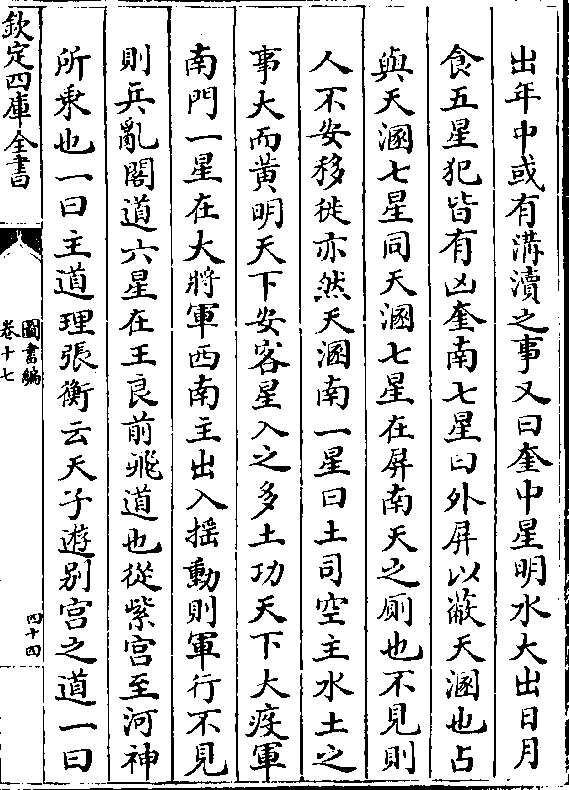 出年中或有溝瀆之事又曰奎中星明水大出日月
食五星犯皆有凶奎南七星曰外屏以蔽天溷也占
與天溷七星同天溷七星在屏南天之厠也不見則
人不安移徙亦然天溷南一星曰土司空主水土之
事大而黄明天下安客星入之多土功天下大疫軍
南門一星在大將軍西南主出入揺動則軍行不見
則兵亂閣道六星在王良前飛道也從紫宮至河神
所乗也一曰主道理張衡云天子遊别宮之道一曰
欽定四庫全書
圖書編
卷十七
四十四